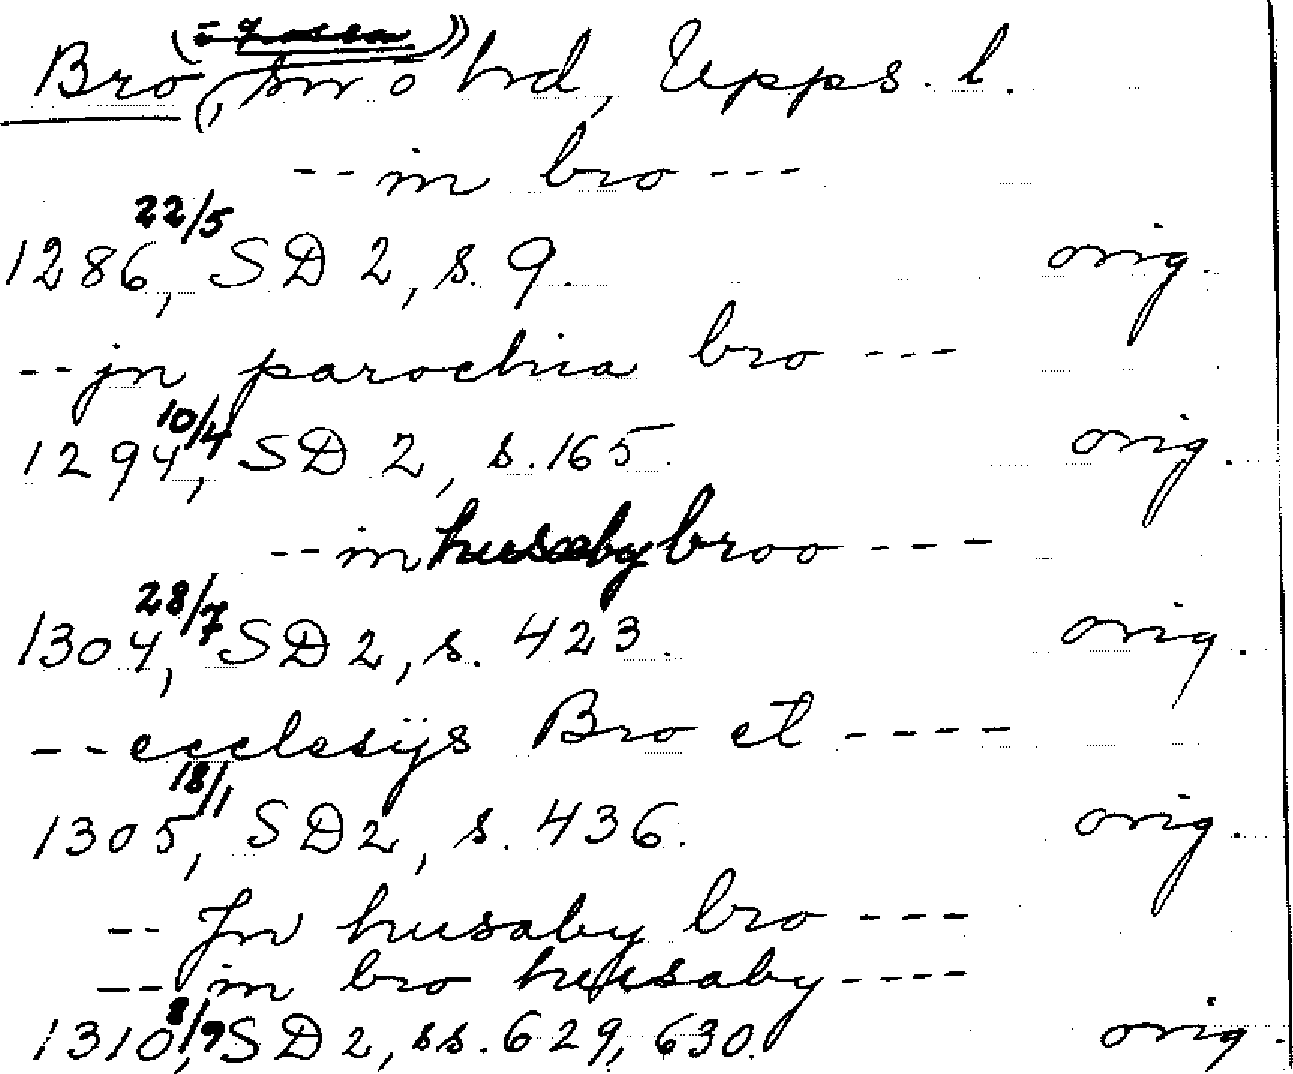 Bro, sn o hd, Upps. l.
-- in bro ---
1286 22/5, SD 2, s. 9. orig.
-- jn parochia bro ---
1294 10/4, SD 2, s. 165. orig.
-- in husabybroo ---
1304 28/7, SD 2, s. 423. orig.
-- ecclesijs Bro et ----
1305 18/1, SD 2, s. 436. orig.
-- Jn husaby bro ---
-- in bro husaby ----
1310 8/9, SD 2, ss. 629, 630. orig.